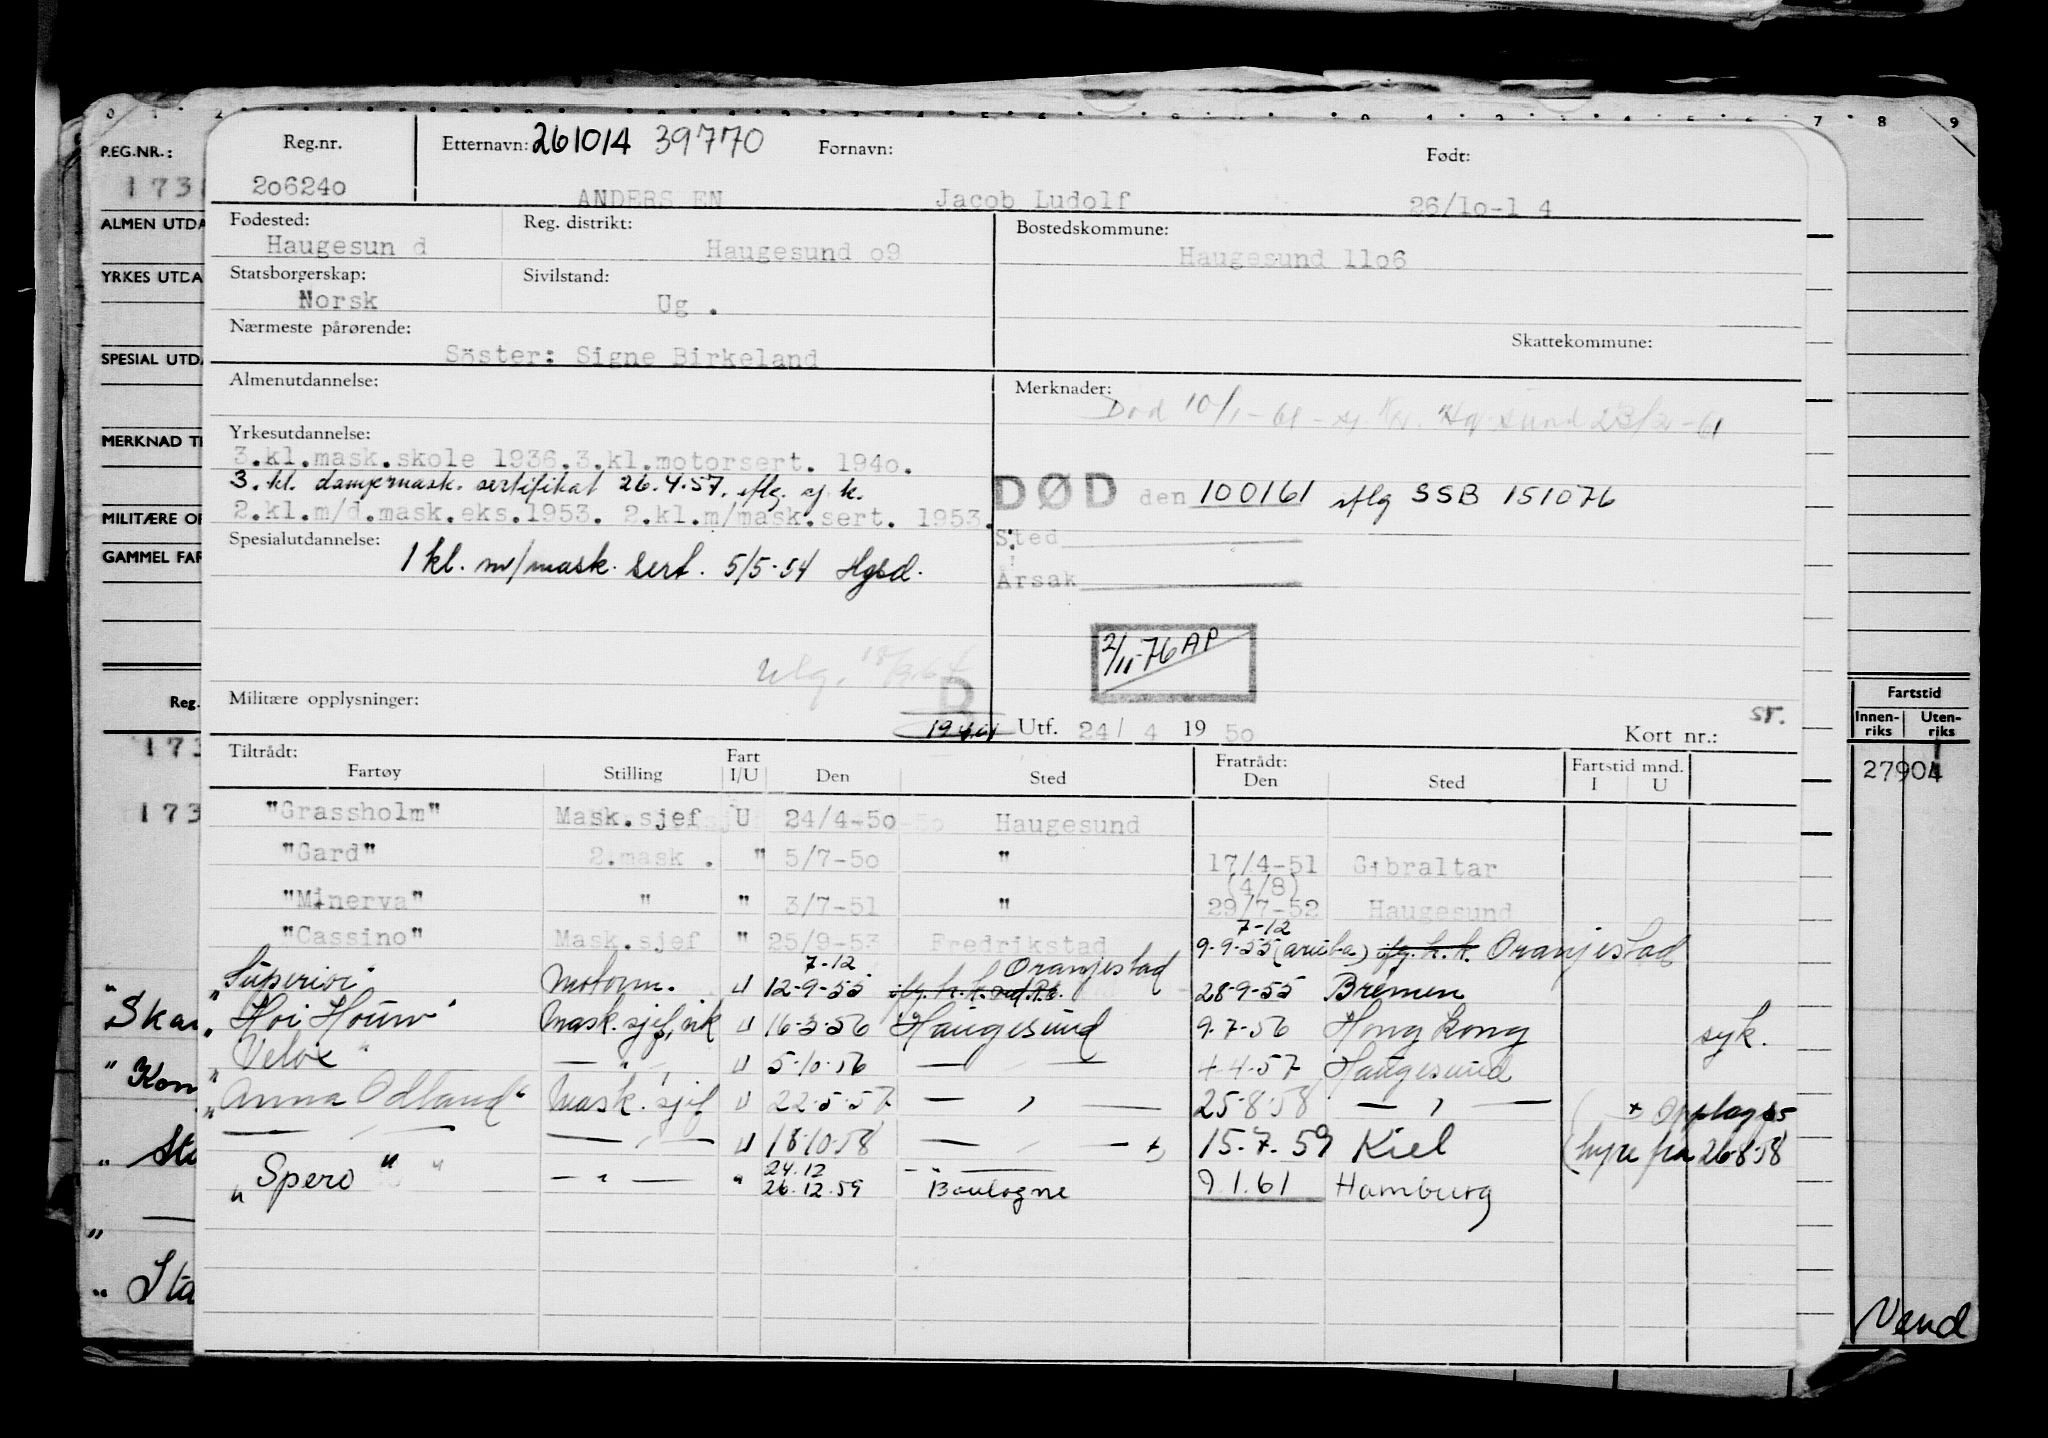 0 1 2 7 8 9
REG.NR.: Reg.nr. Etternavn: 261014 39770 Fornavn: Født:
206240 ANDERS EN Jacob Ludolf 26/10-1 4
ALMEN UTDA Fødested: Reg. distrikt: Bostedskommune:
Haugesun d Haugesund 09 Haugesund 1106
YRKES UTDA Statsborgerskap: Sivilstand:
Norsk Ug .
Nærmeste pårørende: Skattekommune:
SPESIAL UTDA Söster: Signe Birkeland
Almenutdannelse: Merknader:
Død 10/1-61 - sj. Hgsund 23/2-61
MERKNAD T Yrkesutdannelse:
3.kl.mask.skole 1936.3.kl.motorsert. 1940.
3. kl. dampmask. sertifikat 26.4.57. iflg. sj k.
DØD den 100161 iflg SSB 151076
MILITÆRE OP 2.kl.m/d.mask.eks.1953. 2.kl.m/mask.sert. 1953.
Sted
GAMMEL FAR Spesialutdannelse:
1 kl. m/mask. sert. 5/5-54 Hgsd.
Årsak
2/11-76 AP
D
Militære opplysninger: Utf. 24/ 4 19 50 Kort nr.:
Reg. Fartstid
Innen-riks Uten-riks
Tiltrådt: Fratrådt: Fartstid mnd.
Fartøy Stilling Fart I/U Den Sted Den Sted I U
27904
"Grassholm" Mask.sjef U 24/4-50 Haugesund
"Gard" 2.mask . " 5/7-50 " 17/4-51 Gibraltar
(4/8)
"Minerva" " " 3/7-51 " 29/7-52 Haugesund
7-12
"Cassino" Mask.sjef " 25/9-53 Fredrikstad 9-9-55 (aruba) Oranjestad
7-12
"Superior" Motorm. U 12-9-55 Oranjestad 28-9-55 Bremen
"Hoi Houw" Mask.sjef, vik U 16-3-56 Haugesund 9-7-56 Hong Kong syk.
"Velox" — " — U 5-10-56 — " — 4-57 Haugesund
"Anna Odland" Mask.sjef U 22-5-57 — " — 25-8-58 — " — + Opplags
— " — — " — U 18-10-58 — " — + 15-7-59 Kiel hyre fra 26-8-58
24.12
"Spero" — " — " 26.12.59 Boulogne 9.1.61 Hamburg
Vend